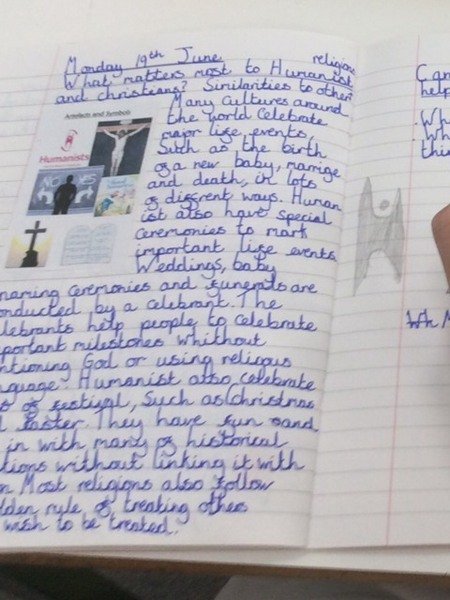 Monday 19th June
religions
What matters most to Humanist
and christians? Similarities to other
Many Cultures around
the world Celebrate
major life events,
Such as the birth
of a new baby, marrige
and death, in lots
of different ways. Human
ist also have special
Ceremonies to mark
important life events
Weddings, baby
naming Ceremonies and funerals are
conducted by a celebrant. The
celebrants help people to celebrate
important milestones whithout
mentioning God or using religous
language. Humanist also celebrate
of festival, Such as Christmas
easter. They have fun and
in with many of historical
without linking it with
Most religions also follow
rule of treating others
wish to be treated.
Artefacts and Symbols
Humanists
Can
help